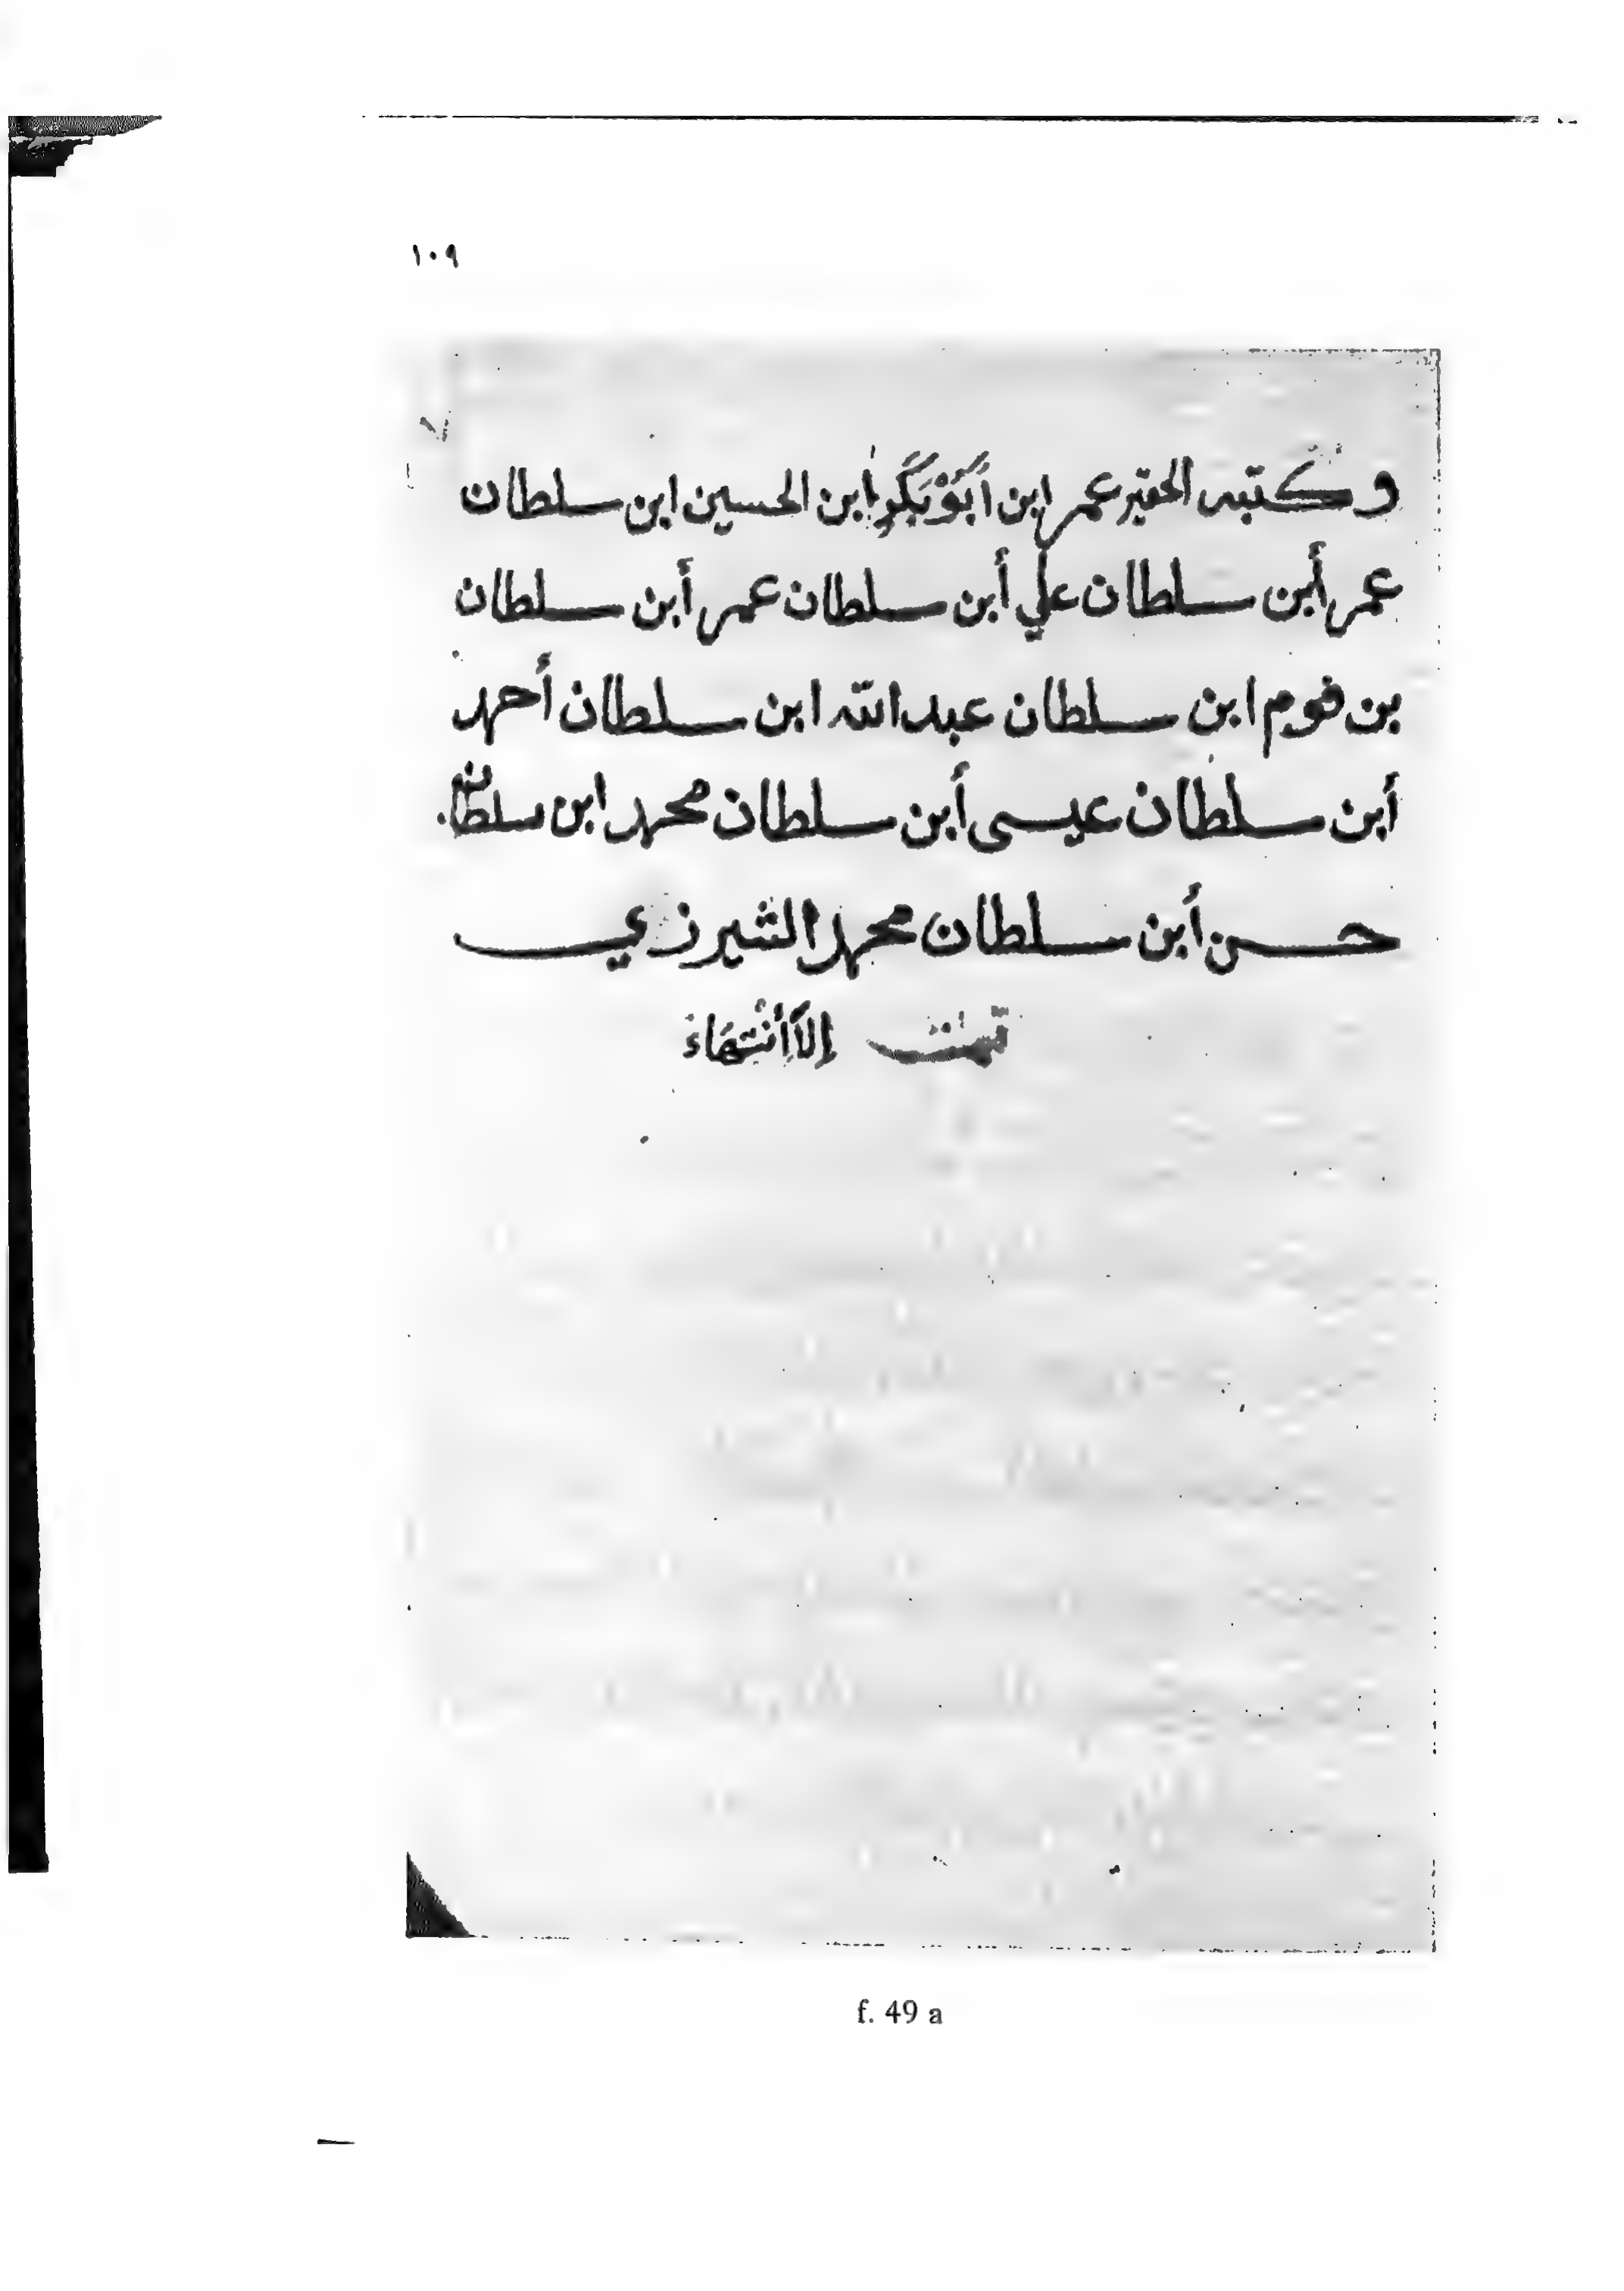 ١٠٩
وكتبه الحقير عمر ابن أَبَوْبَكَرِ ابن الحسين ابن سلطان
عمر أبن سلطان علي أبن سلطان عمر أبن سلطان
بن فوم ابن سلطان عبد الله ابن سلطان أحمد
أبن سلطان عيسى أبن سلطان محمد ابن سلطان
حسن أبن سلطان محمد الشيرزي
تمت إلاَأنْتِهَاءَ
f. 49 a